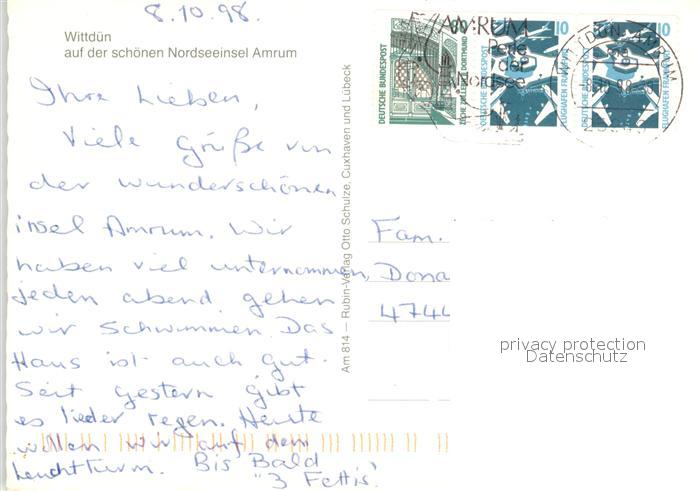 8.10.98.
Wittdün
auf der schönen Nordseeinsel Amrum
Ihre Lieben,
Viele Grüße von
der wunderschönen
insel Amrum. Wir
haben viel unternommen,
jeden abend gehen
wir schwimmen. Das
Haus ist auch gut.
Seit gestern gibt
es lieder regen. Heute
wollen wir auf dem
Leuchtturm. Bis Bald
"3 Fettis"
Am 814 — Rubin-Verlag Otto Schulze, Cuxhaven und Lübeck
DEUTSCHE BUNDESPOST
ZECHE ZOLLERN II DORTMUND
AMRUM
Perle
der
Nordsee
DEUTSCHE BUNDESPOST
10
FLUGHAFEN FRANKFURT
DEUTSCHE BUNDESPOST
10
FLUGHAFEN FRANKFURT
WITTDÜN, AMRUM
Fam.
Dona
4744
privacy protection
Datenschutz